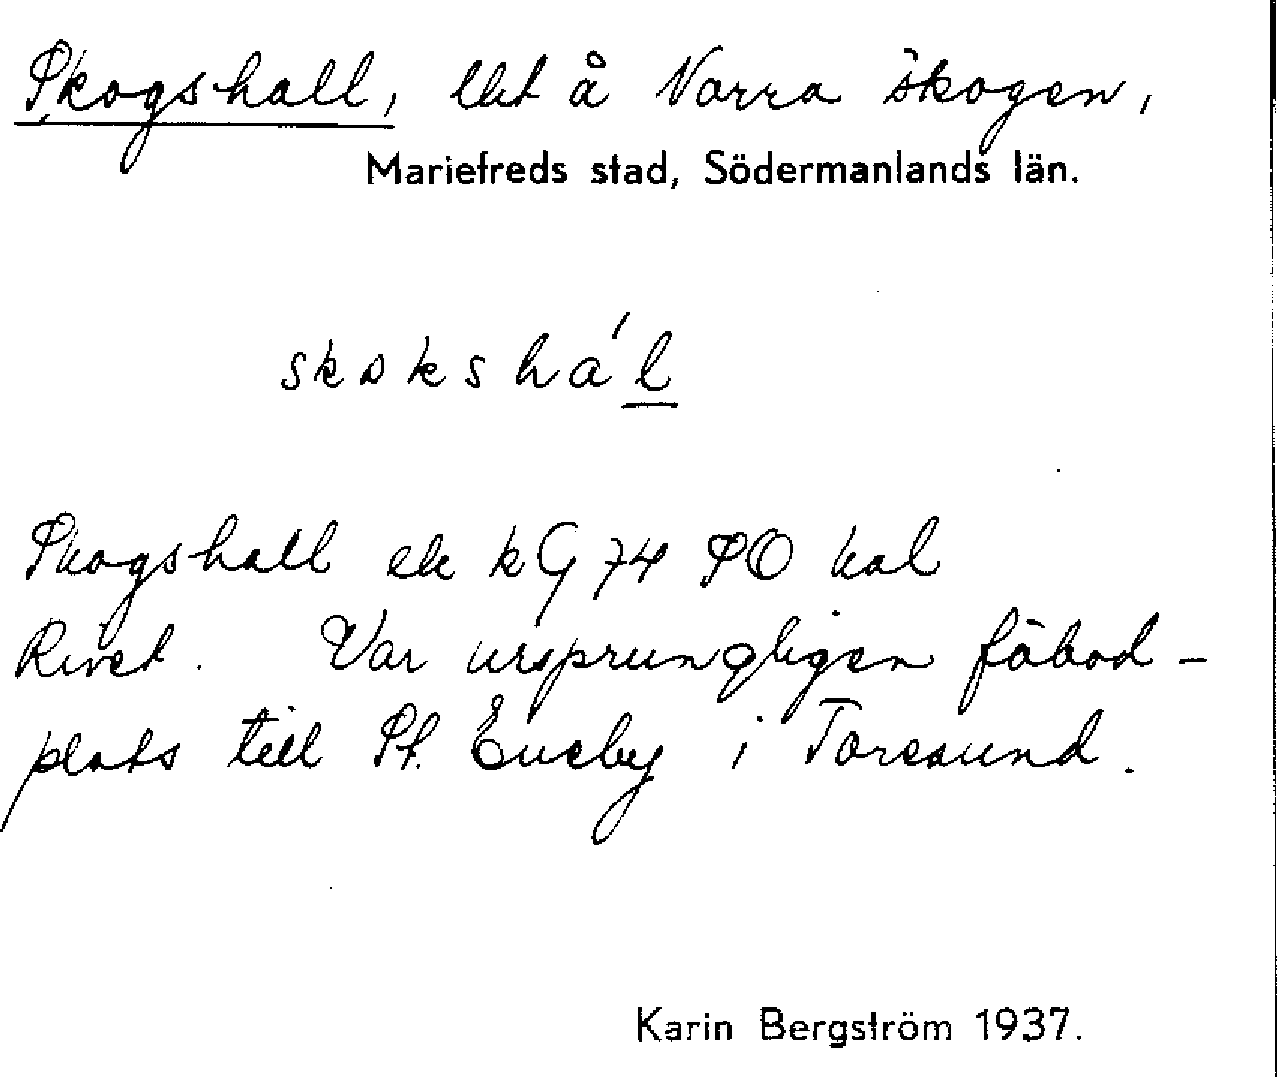 Skogshall, lht å Norra skogen,
Mariefreds stad, Södermanlands län.
skokshál
Skogshall ek kG 74 SO kal
Rivet. Var ursprungligen fäbod-
plats till St. Eneby i Toresund.
Karin Bergström 1937.